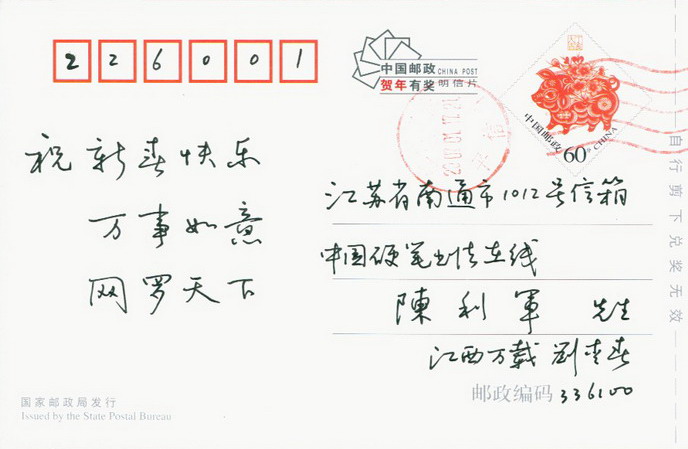 226001
中国邮政 CHINA POST
贺年有奖 明信片
中国邮政 CHINA
60
祝新春快乐
万事如意
网罗天下
江苏省南通市1012号信箱
中国硬笔书法在线
陳利軍 先生
江西万载 劉
邮政编码 336100
国家邮政局发行
Issued by the State Postal Bureau
自行剪下兑奖无效